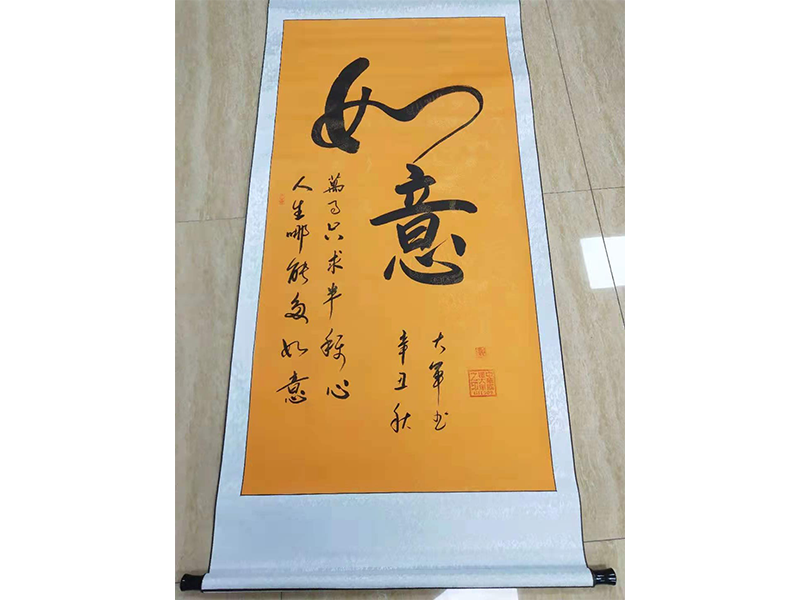 如意
人生哪能多如意
萬事只求半称心
辛丑秋
大軍书